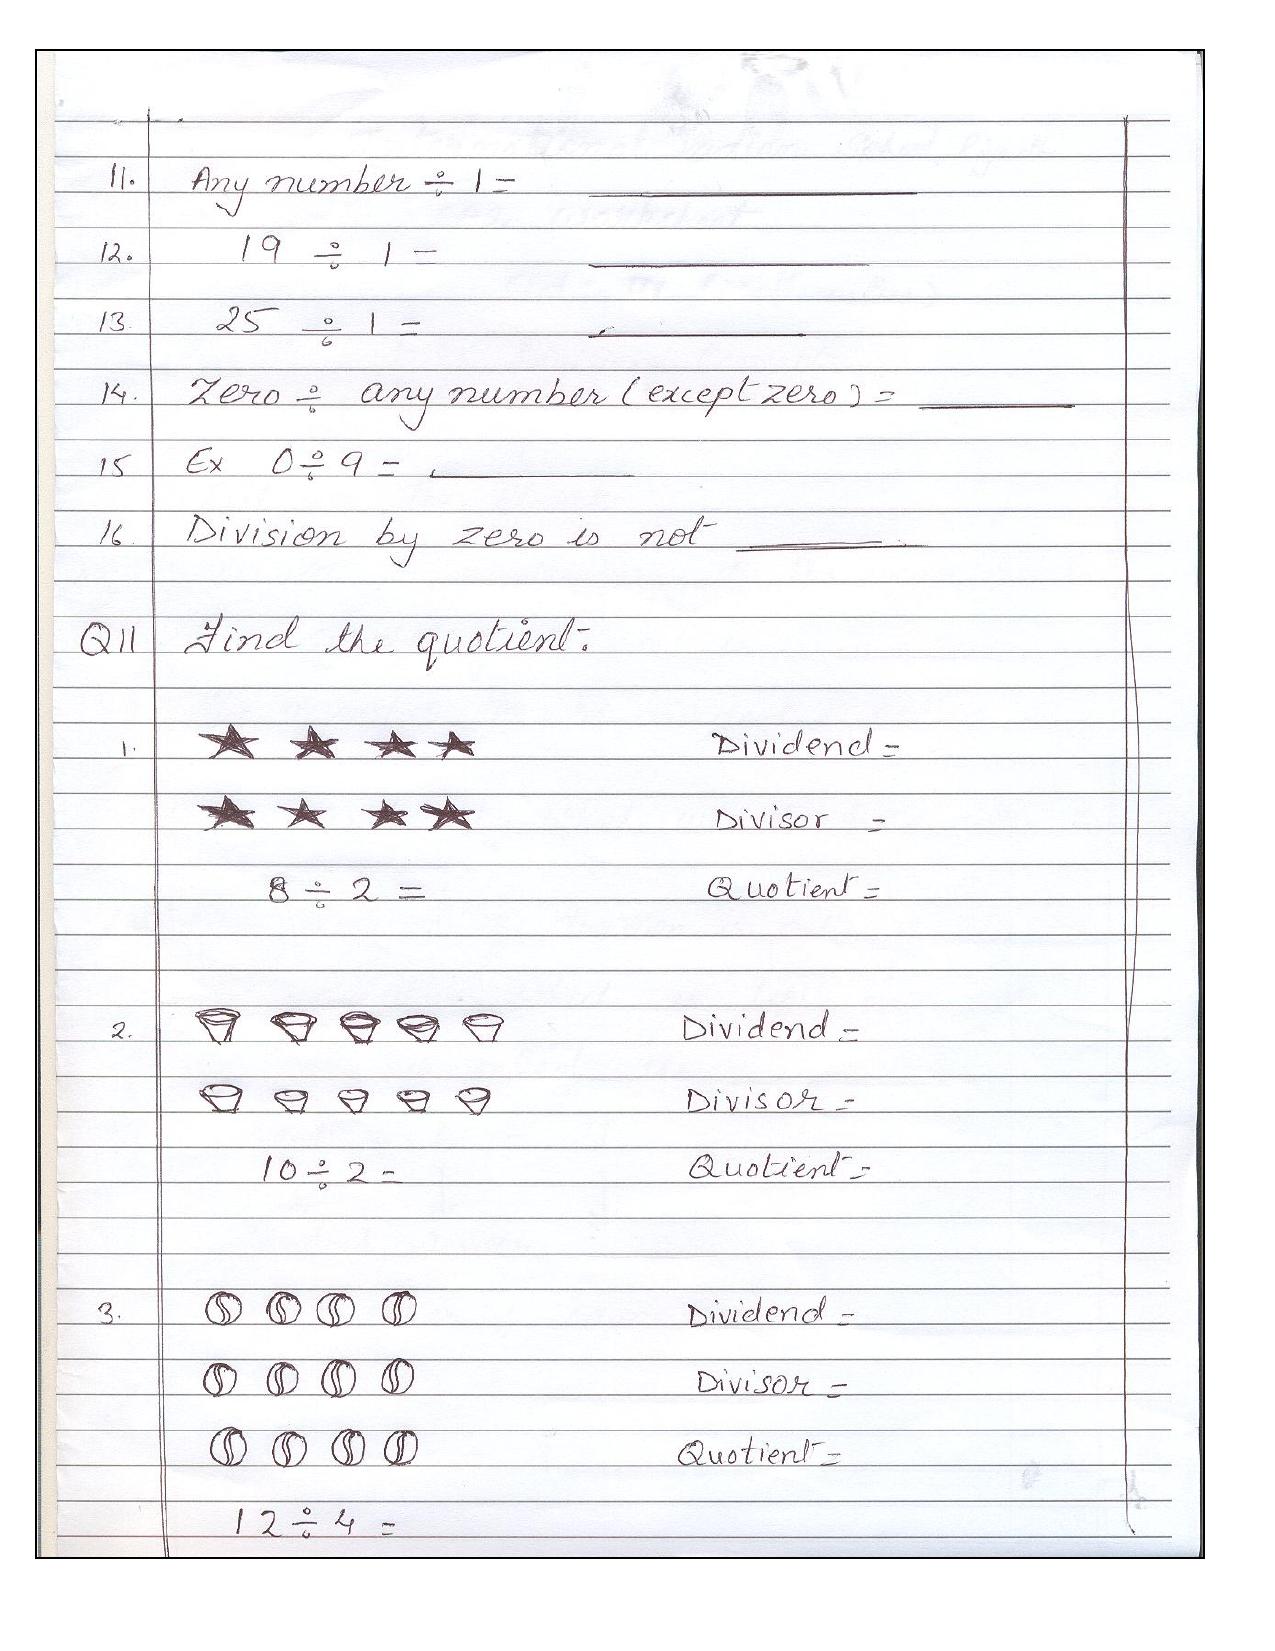 11. Any number ÷ 1 =
12. 19 ÷ 1 =
13. 25 ÷ 1 =
14. Zero ÷ any number (except zero) =
15 Ex 0 ÷ 9 =
16. Division by zero is not
QII Find the quotient:
1. Dividend =
Divisor =
8 ÷ 2 = Quotient =
2. Dividend =
Divisor =
10 ÷ 2 = Quotient =
3. Dividend =
Divisor =
Quotient =
12 ÷ 4 =